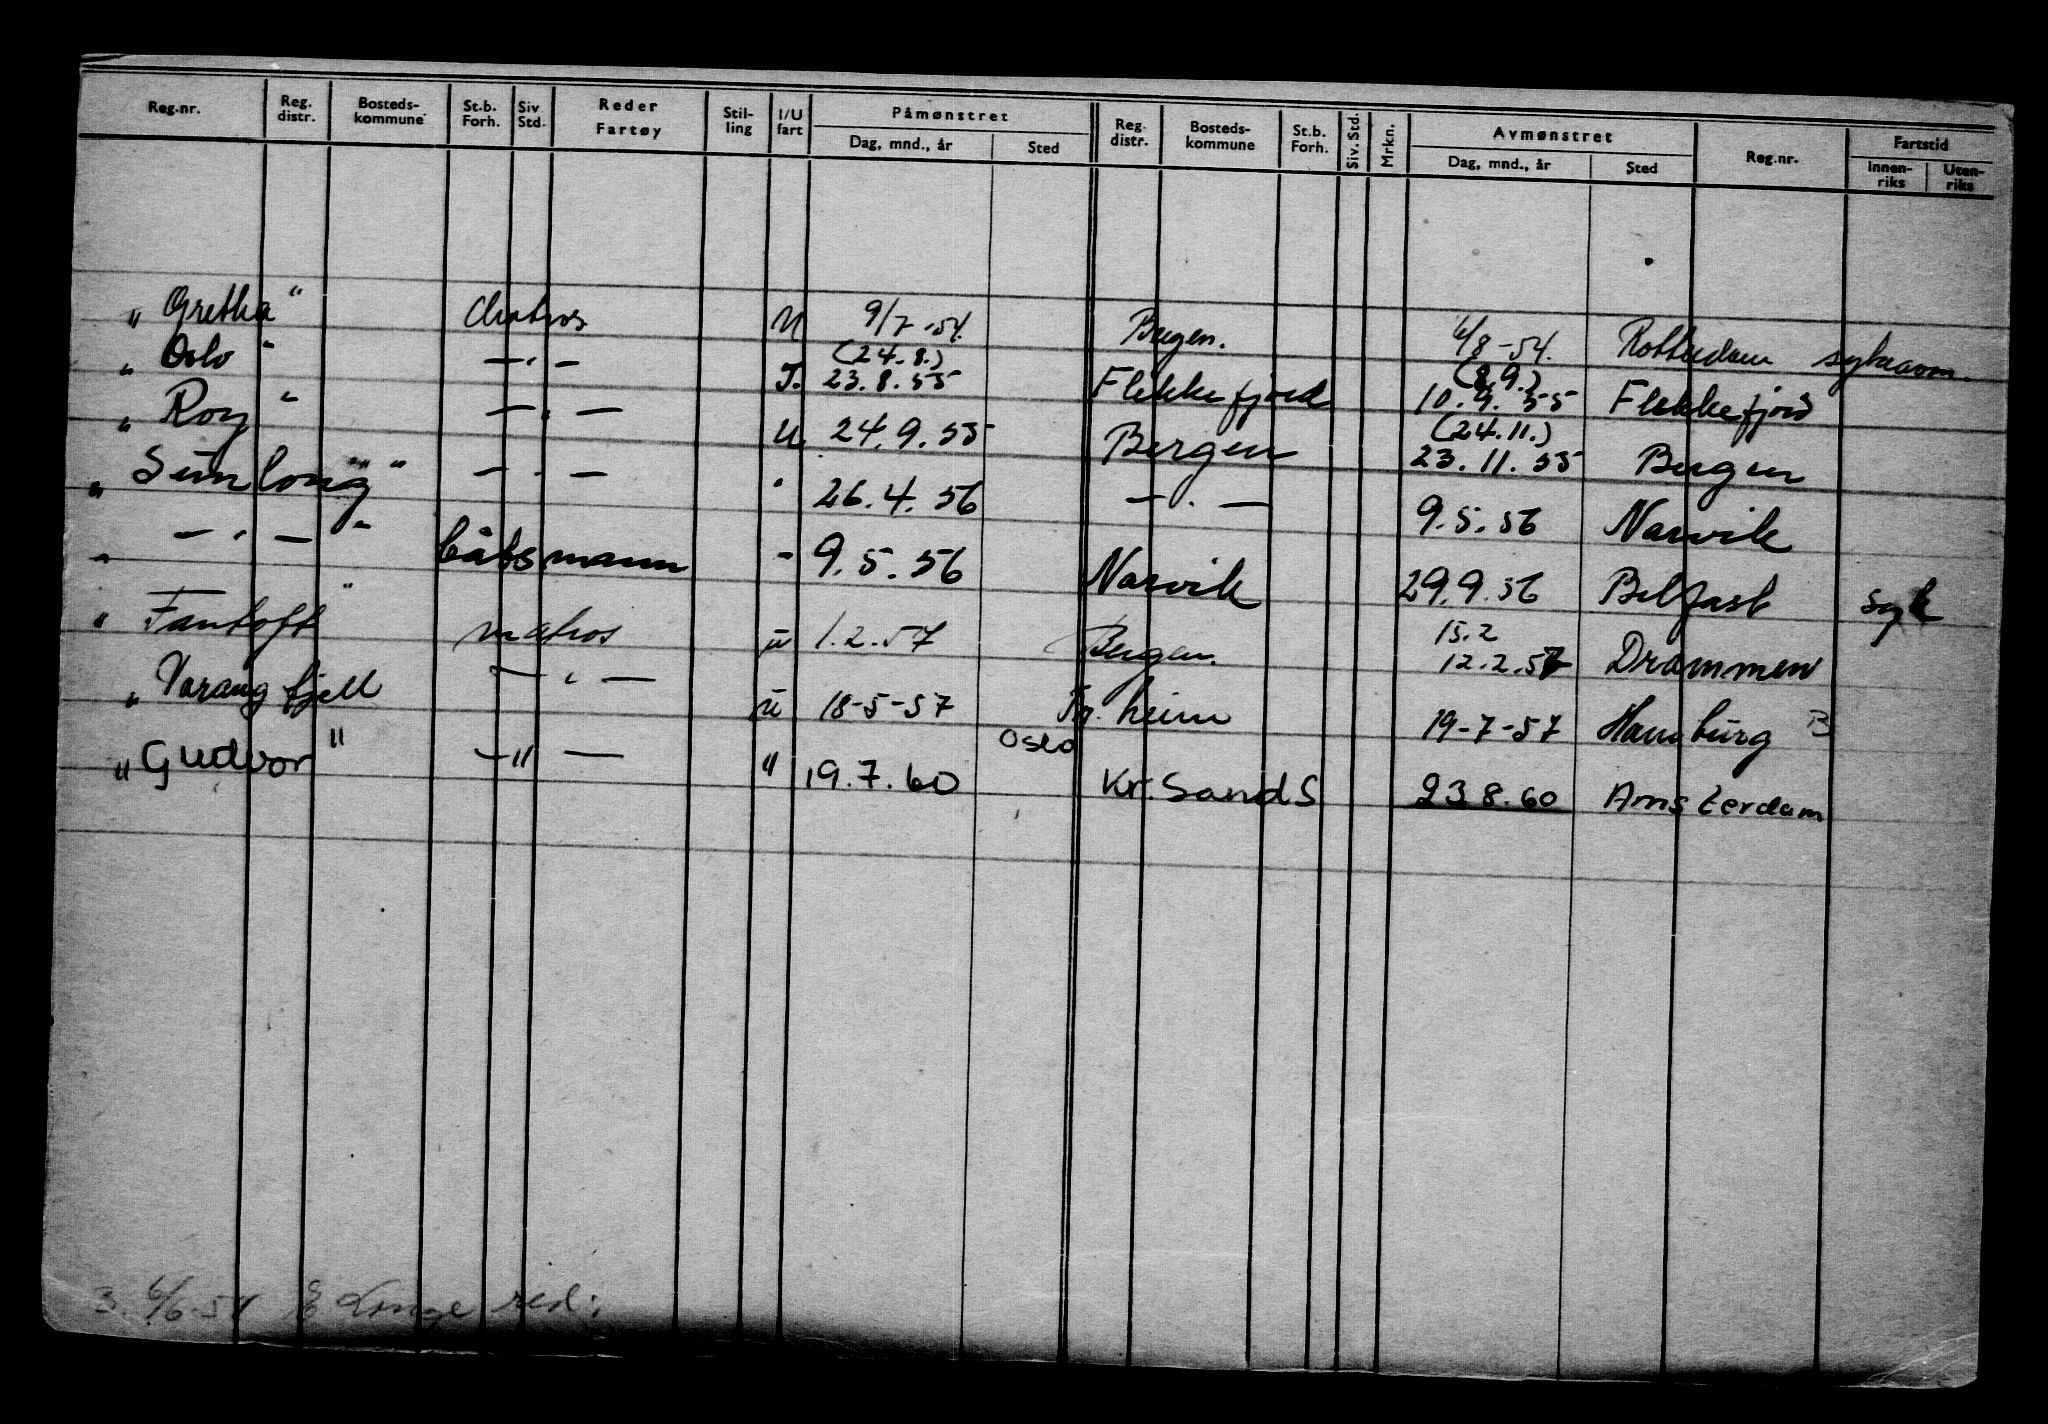 Reg.nr. Reg. distr. Bosteds-kommune St.b. Forh. Siv. Std. Reder Fartøy Stil-ling I/U fart Påmønstret Dag, mnd., år Sted Reg. distr. Bosteds-kommune St.b. Forh. Siv. Std. Mrkn. Avmønstret Dag, mnd., år Sted Reg.nr. Fartstid Innen-riks Uten-riks
„ Gretha " Matros U 9/7-54. Bergen. 6/8-54. Rotterdam sykeavm.
„ Oslo " — " — I. (24.8.) 23.8.55 Flekkefjord (8.9.) 10.9.55 Flekkefjord
„ Roy " — " — U 24.9.55 Bergen (24.11.) 23.11.55 Bergen
„ Sunlong " — " — " 26.4.56 — " — 9.5.56 Narvik
„ — " — " båtsmann - 9.5.56 Narvik 29.9.56 Belfast syk
" Fantoft " matros u 1.2.57 Bergen. 15.2 12.2.57 Drammen
„ Varangfjell — " — u 18-5-57 Tr.heim 19-7-57 Hamburg B
„ Gudvor " — " — " 19.7.60 Oslo Kr.Sand S 23.8.60 Amsterdam
3. 6/6-54 red: